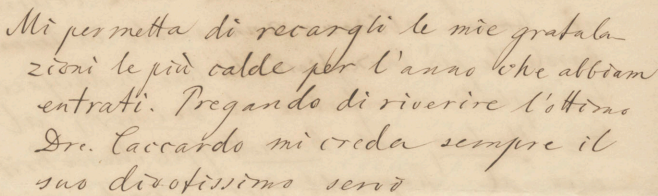 Mi permetta di recargli le mie gratula-
zioni le più calde per l'anno che abbiam
entrati. Pregando di riverire l'ottimo
Dre. Caccardo mi creda sempre il
suo divotissimo servo